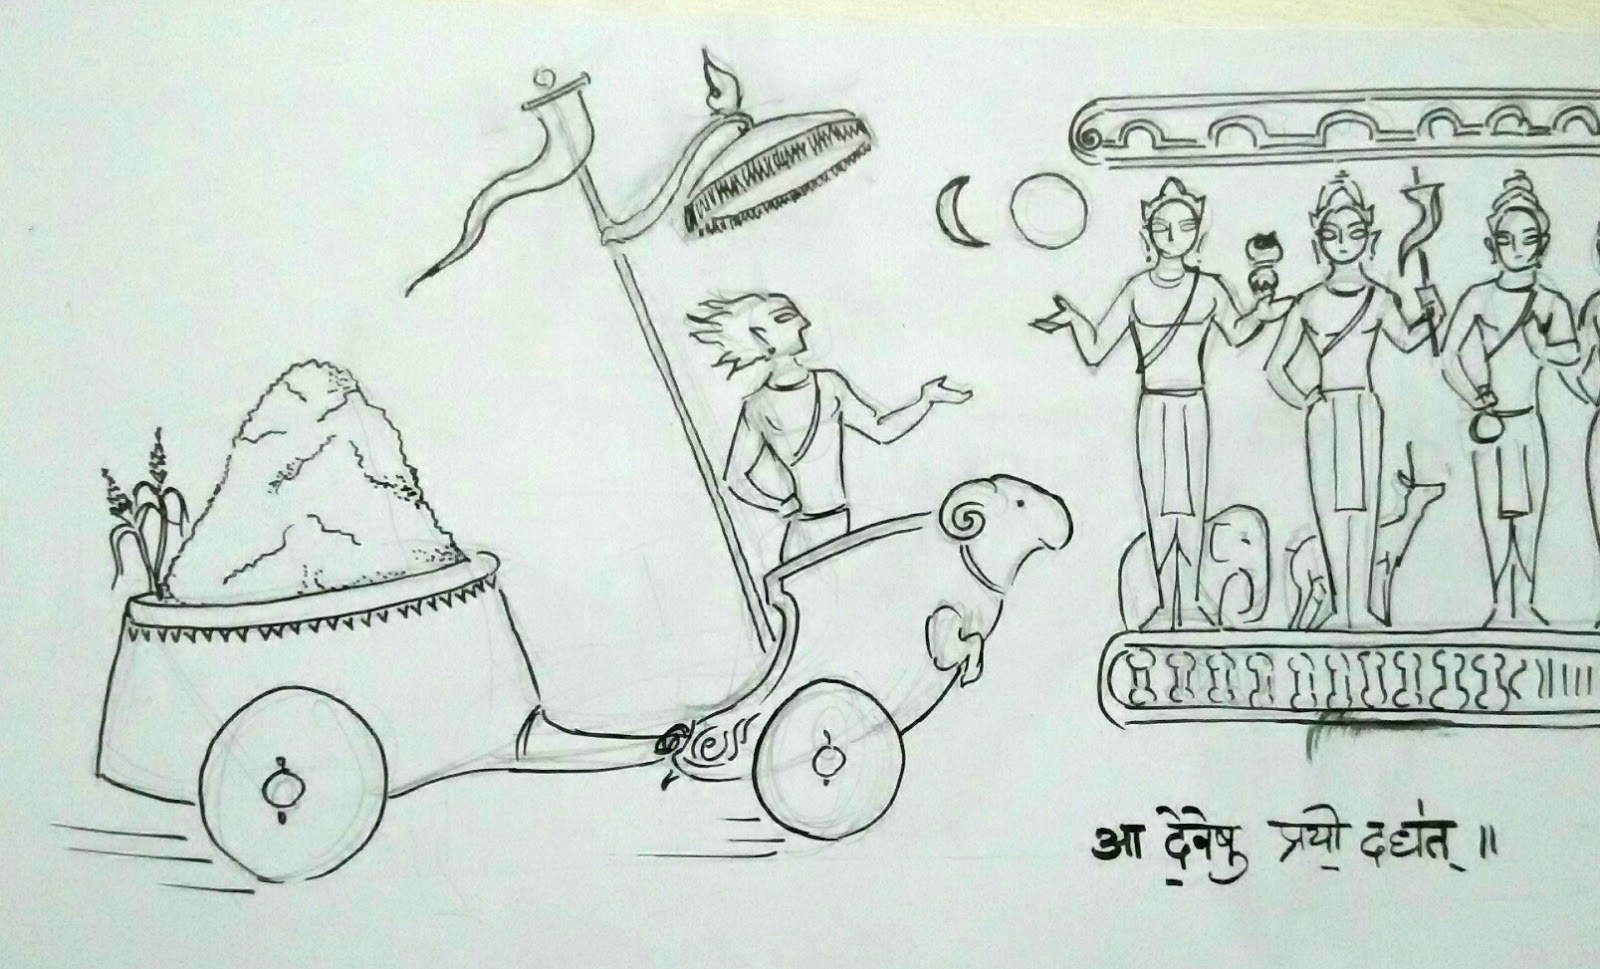 आ दे॒वेषु॒ प्रयो॒ दध॑त् ॥